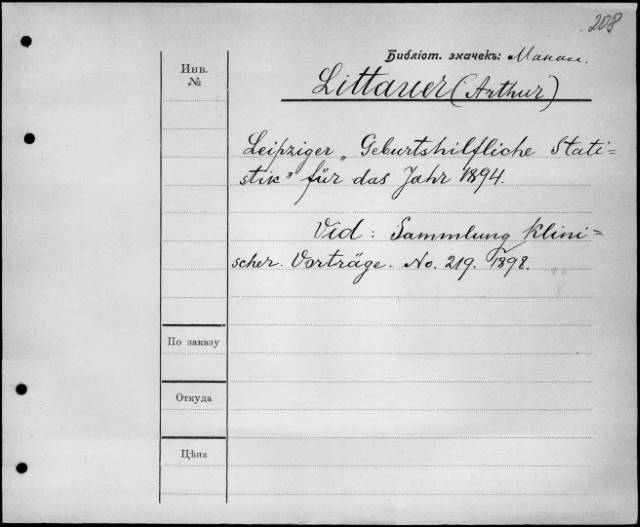 208
Библіот. значекъ:
Инв.
№
Littauer (Arthur)
Leipziger „Geburtshilfliche Stati=
stik" für das Jahr 1894.
Vid: Sammlung Klini=
scher Vorträge. No. 219. 1898.
По заказу
Откуда
Цѣна